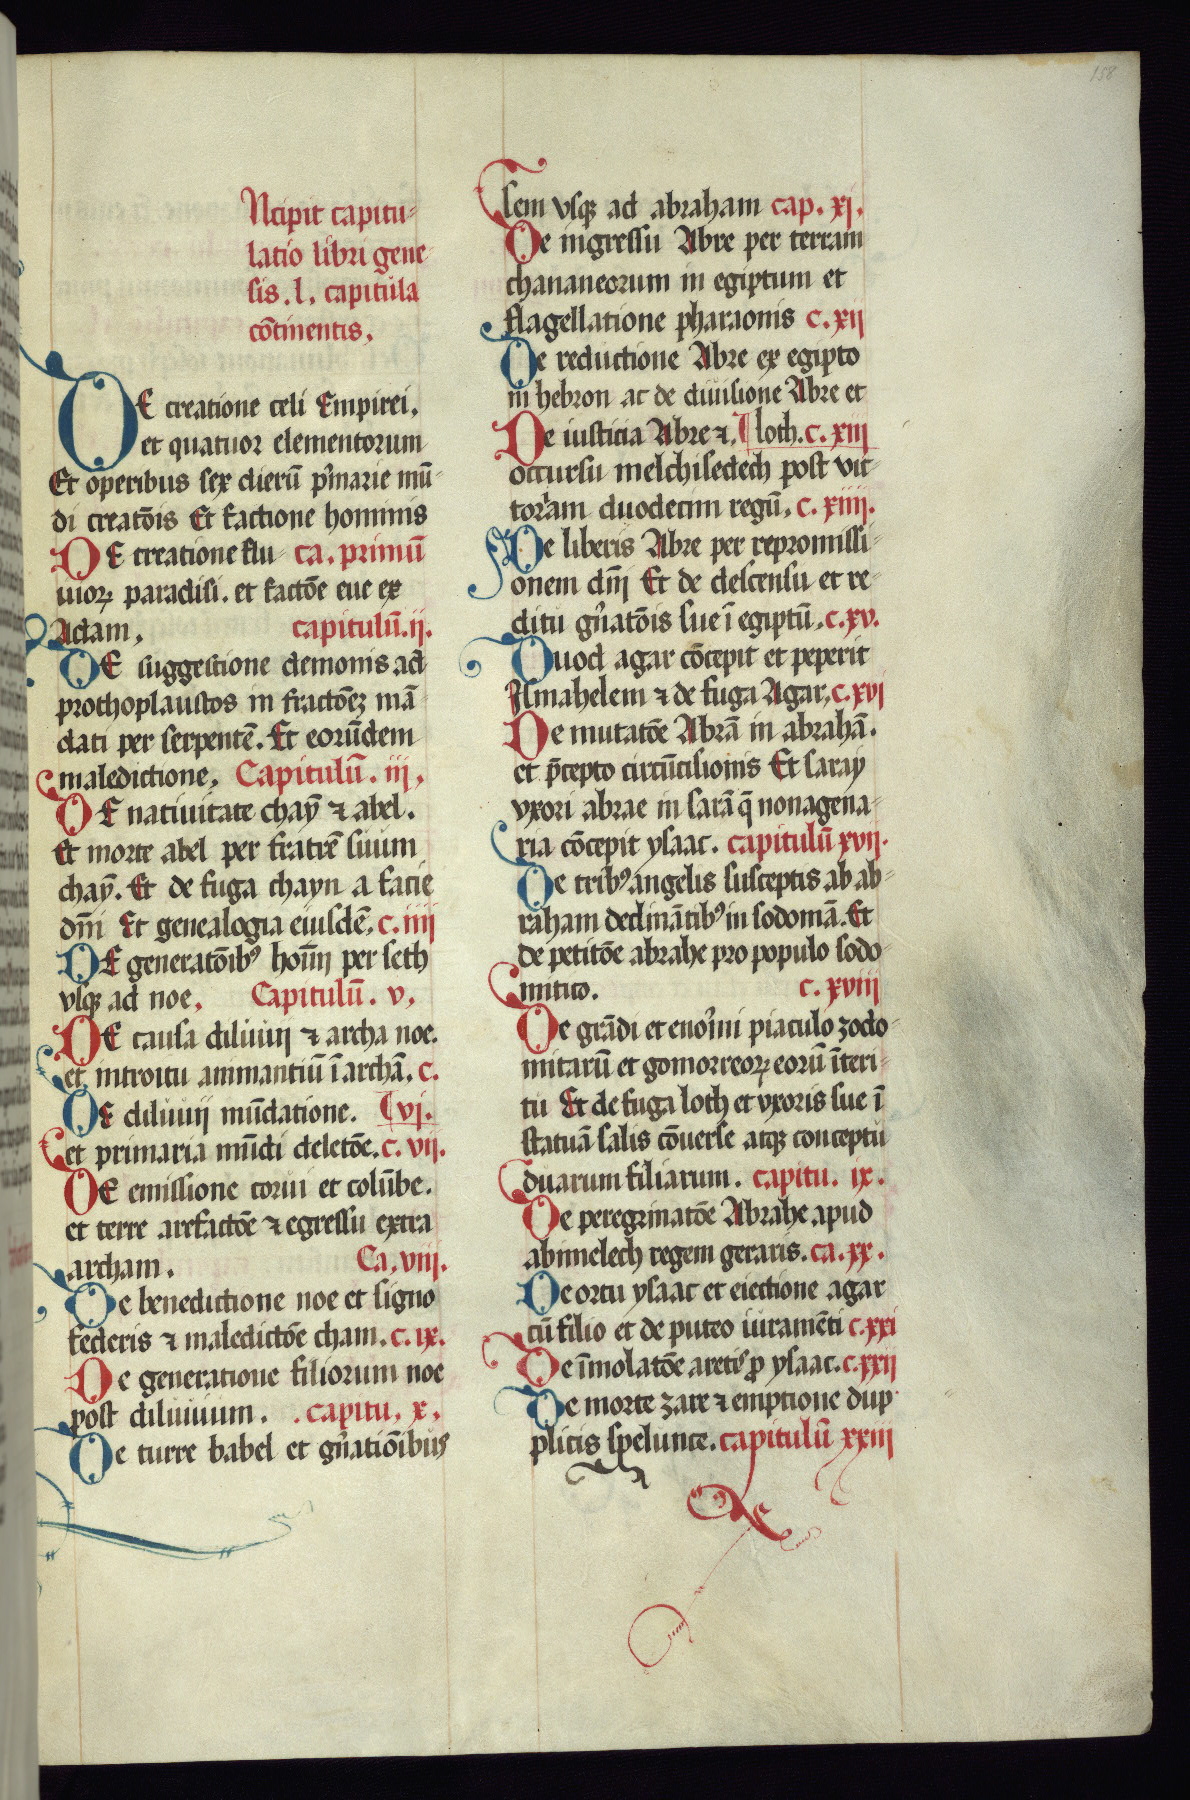 158
Ncipit capitu-
latio libri gene
sis .l. capitula
cōtinentis.
DE creatione celi Empirei.
et quatuor elementorum
Et operibus sex dierū p'marie mū-
di creatōis Et factione hominis
DE creatione flu- ca. primū
uiorꝝ paradisi. et factōe eue ex
Adam. capitulū .ii.
DE suggestione demonis ad
prothoplaustos in fractōeꝫ mā-
dati per serpentē. Et eorūdem
maledictione. Capitulū. iii.
DE natiuitate chaȳ ⁊ abel.
Et morte abel per fratrē suum
chaȳ. Et de fuga chayn a facie
dn̄i Et genealogia eiusdē. c. iiii
DE generatōibꝰ hoīm per seth
vsqꝫ ad noe. Capitulū. v.
DE causa diluuii ⁊ archa noe.
et introitu animantiū ī archā. c.
DE diluuii inūdatione. vi.
et primaria mūdi deletōe. c. vii.
DE emissione corui et colūbe.
et terre arefactōe ⁊ egressu extra
archam. Ca. viii.
De benedictione noe et signo
federis ⁊ maledictōe cham. c. ix.
De generatione filiorum noe
post diluuium. capitu. x.
De turre babel et gn̄atiōibus
sem vsqꝫ ad abraham cap. xi.
De ingressu Abre per terram
chananeorum in egiptum et
flagellatione pharaonis c. xii
De reductione Abre ex egipto
in hebron ac de diuisione Abre et
De iusticia Abre ⁊. loth. c. xiii
occursu melchisedech post vic-
toriam duodecim regū. c. xiiii.
De liberis Abre per repromissi-
onem dn̄i Et de descensu et re-
ditu gn̄atōis sue ī egiptū. c. xv.
Quod agar cōcepit et peperit
Ismahelem ⁊ de fuga Agar. c. xvi
De mutatōe Abrā in abrahā.
et p̄cepto circūcisionis Et saray
vxori abrae in sarā q̄ nonagena-
ria cōcepit ysaac. capitulū xvii.
De tribꝰ angelis susceptis ab ab-
raham declinātibꝰ in sodomā. Et
de petitōe abrahe pro populo sodo-
mitico. c. xviii
De grādi et enormi piaculo zodo-
mitarū et gomorreorꝝ eorū īteri-
tu Et de fuga loth et vxoris sue ī
statuā salis cōuerse atqꝫ conceptu
duarum filiarum. capitu. ix.
De peregrinatōe Abrahe apud
abimelech regem geraris. ca. xx.
De ortu ysaac et eiectione agar
cū filio et de puteo iuramēti c. xxi
De īmolatōe arietis ꝓ ysaac. c. xxii
De morte zare ⁊ emptione dup-
plicis spelunce. capitulū xxiii